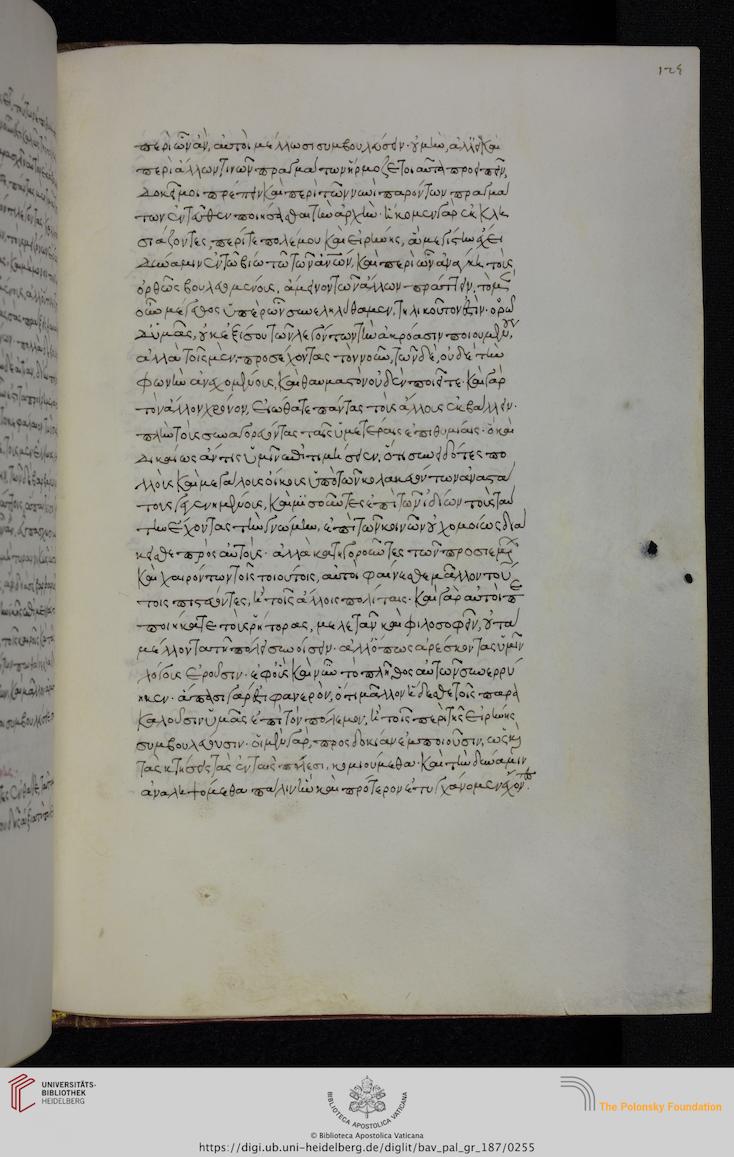 περὶ ὧν ἂν, αὐτοὶ μέλλωσι συμβουλεύσειν· ὑμῖν, ἀλλ' εἰ καὶ
περὶ ἄλλων τινῶν πραγμάτων ἥρμοζε τοιαῦτα προειπεῖν,
δοκεῖ μοι πρέπειν καὶ περὶ τῶν νυνὶ παρόντων πραγμά
των ἐντεῦθεν ποιήσασθαι τὴν ἀρχήν. ἥκομεν γὰρ ἐκκλη
σιάζοντες, περί τε πολέμου καὶ εἰρήνης, ἃ μεγίστην ἔχει
δύναμιν ἐν τῷ βίῳ τῷ τῶν ἀνθρώπων, καὶ περὶ ὧν ἀνάγκη τοὺς
ὀρθῶς βουλευομένους, ἄμεινον τῶν ἄλλων πράττειν, τὸ μὲν
οὖν μέγεθος ὑπὲρ ὧν συνεληλύθαμεν, τηλικοῦτον ἐστίν. ὁρῶ
δ' ὑμᾶς, οὐκ ἐξ ἴσου τῶν λεγόντων τὴν ἀκρόασιν ποιουμένους,
ἀλλὰ τοῖς μὲν, προσέχοντας τὸν νοῦν, τῶν δὲ, οὐδὲ τὴν
φωνὴν ἀνεχομένους, καὶ θαυμαστὸν οὐδὲν ποιεῖτε. καὶ γὰρ
τὸν ἄλλον χρόνον, εἰώθατε πάντας τοὺς ἄλλους ἐκβάλλειν.
πλὴν τοὺς συναγορεύοντας ταῖς ὑμετέραις ἐπιθυμίαις. ὃ καὶ
δικαίως ἄν τις ὑμῖν ἐπιτιμήσειεν, ὅτι συνειδότες πο
λλοὺς καὶ μεγάλους οἴκους ὑπὸ τῶν κολακευόντων ἀναστά
τους γεγενημένους, καὶ μισοῦντες ἐπὶ τῶν ἰδίων τοὺς ταύ
την ἔχοντας τὴν γνώμην, ἐπὶ τῶν κοινῶν οὐχ ὁμοίως δια
κεῖσθε πρὸς αὐτούς. ἀλλὰ κατηγοροῦντες τῶν προσιεμένων
καὶ χαιρόντων τοῖς τοιούτοις, αὐτοὶ φαίνεσθε μᾶλλον τού
τοις πιστεύοντες, ἢ τοῖς ἄλλοις πολίταις. καὶ γὰρ αὐτοὶ πε
ποιήκατε τοὺς ῥήτορας, μελετᾶν καὶ φιλοσοφεῖν, οὐ τὰ
μέλλοντα τῇ πόλει συνοίσειν. ἀλλ' ὅπως ἀρέσκοντας ὑμῖν
λόγους ἐροῦσιν. ἐφ' οὓς καὶ νῦν τὸ πλῆθος αὐτῶν συνερρύ
ηκεν. ἅπασι γάρ ἐστι φανερὸν, ὅτι μᾶλλον ἥδεσθε τοῖς παρα
καλοῦσιν ὑμᾶς ἐπὶ τὸν πόλεμον, ἢ τοῖς περὶ τῆς εἰρήνης
συμβουλεύουσιν. οἱ μὲν γὰρ, προσδοκίαν ἐμποιοῦσιν, ὡς καὶ
τὰς κτήσεις τὰς ἐν ταῖς πόλεσι, κομιούμεθα. καὶ τὴν δύναμιν
ἀναληψόμεθα πάλιν ἣν καὶ πρότερον ἐτυγχάνομεν ἔχοντες.